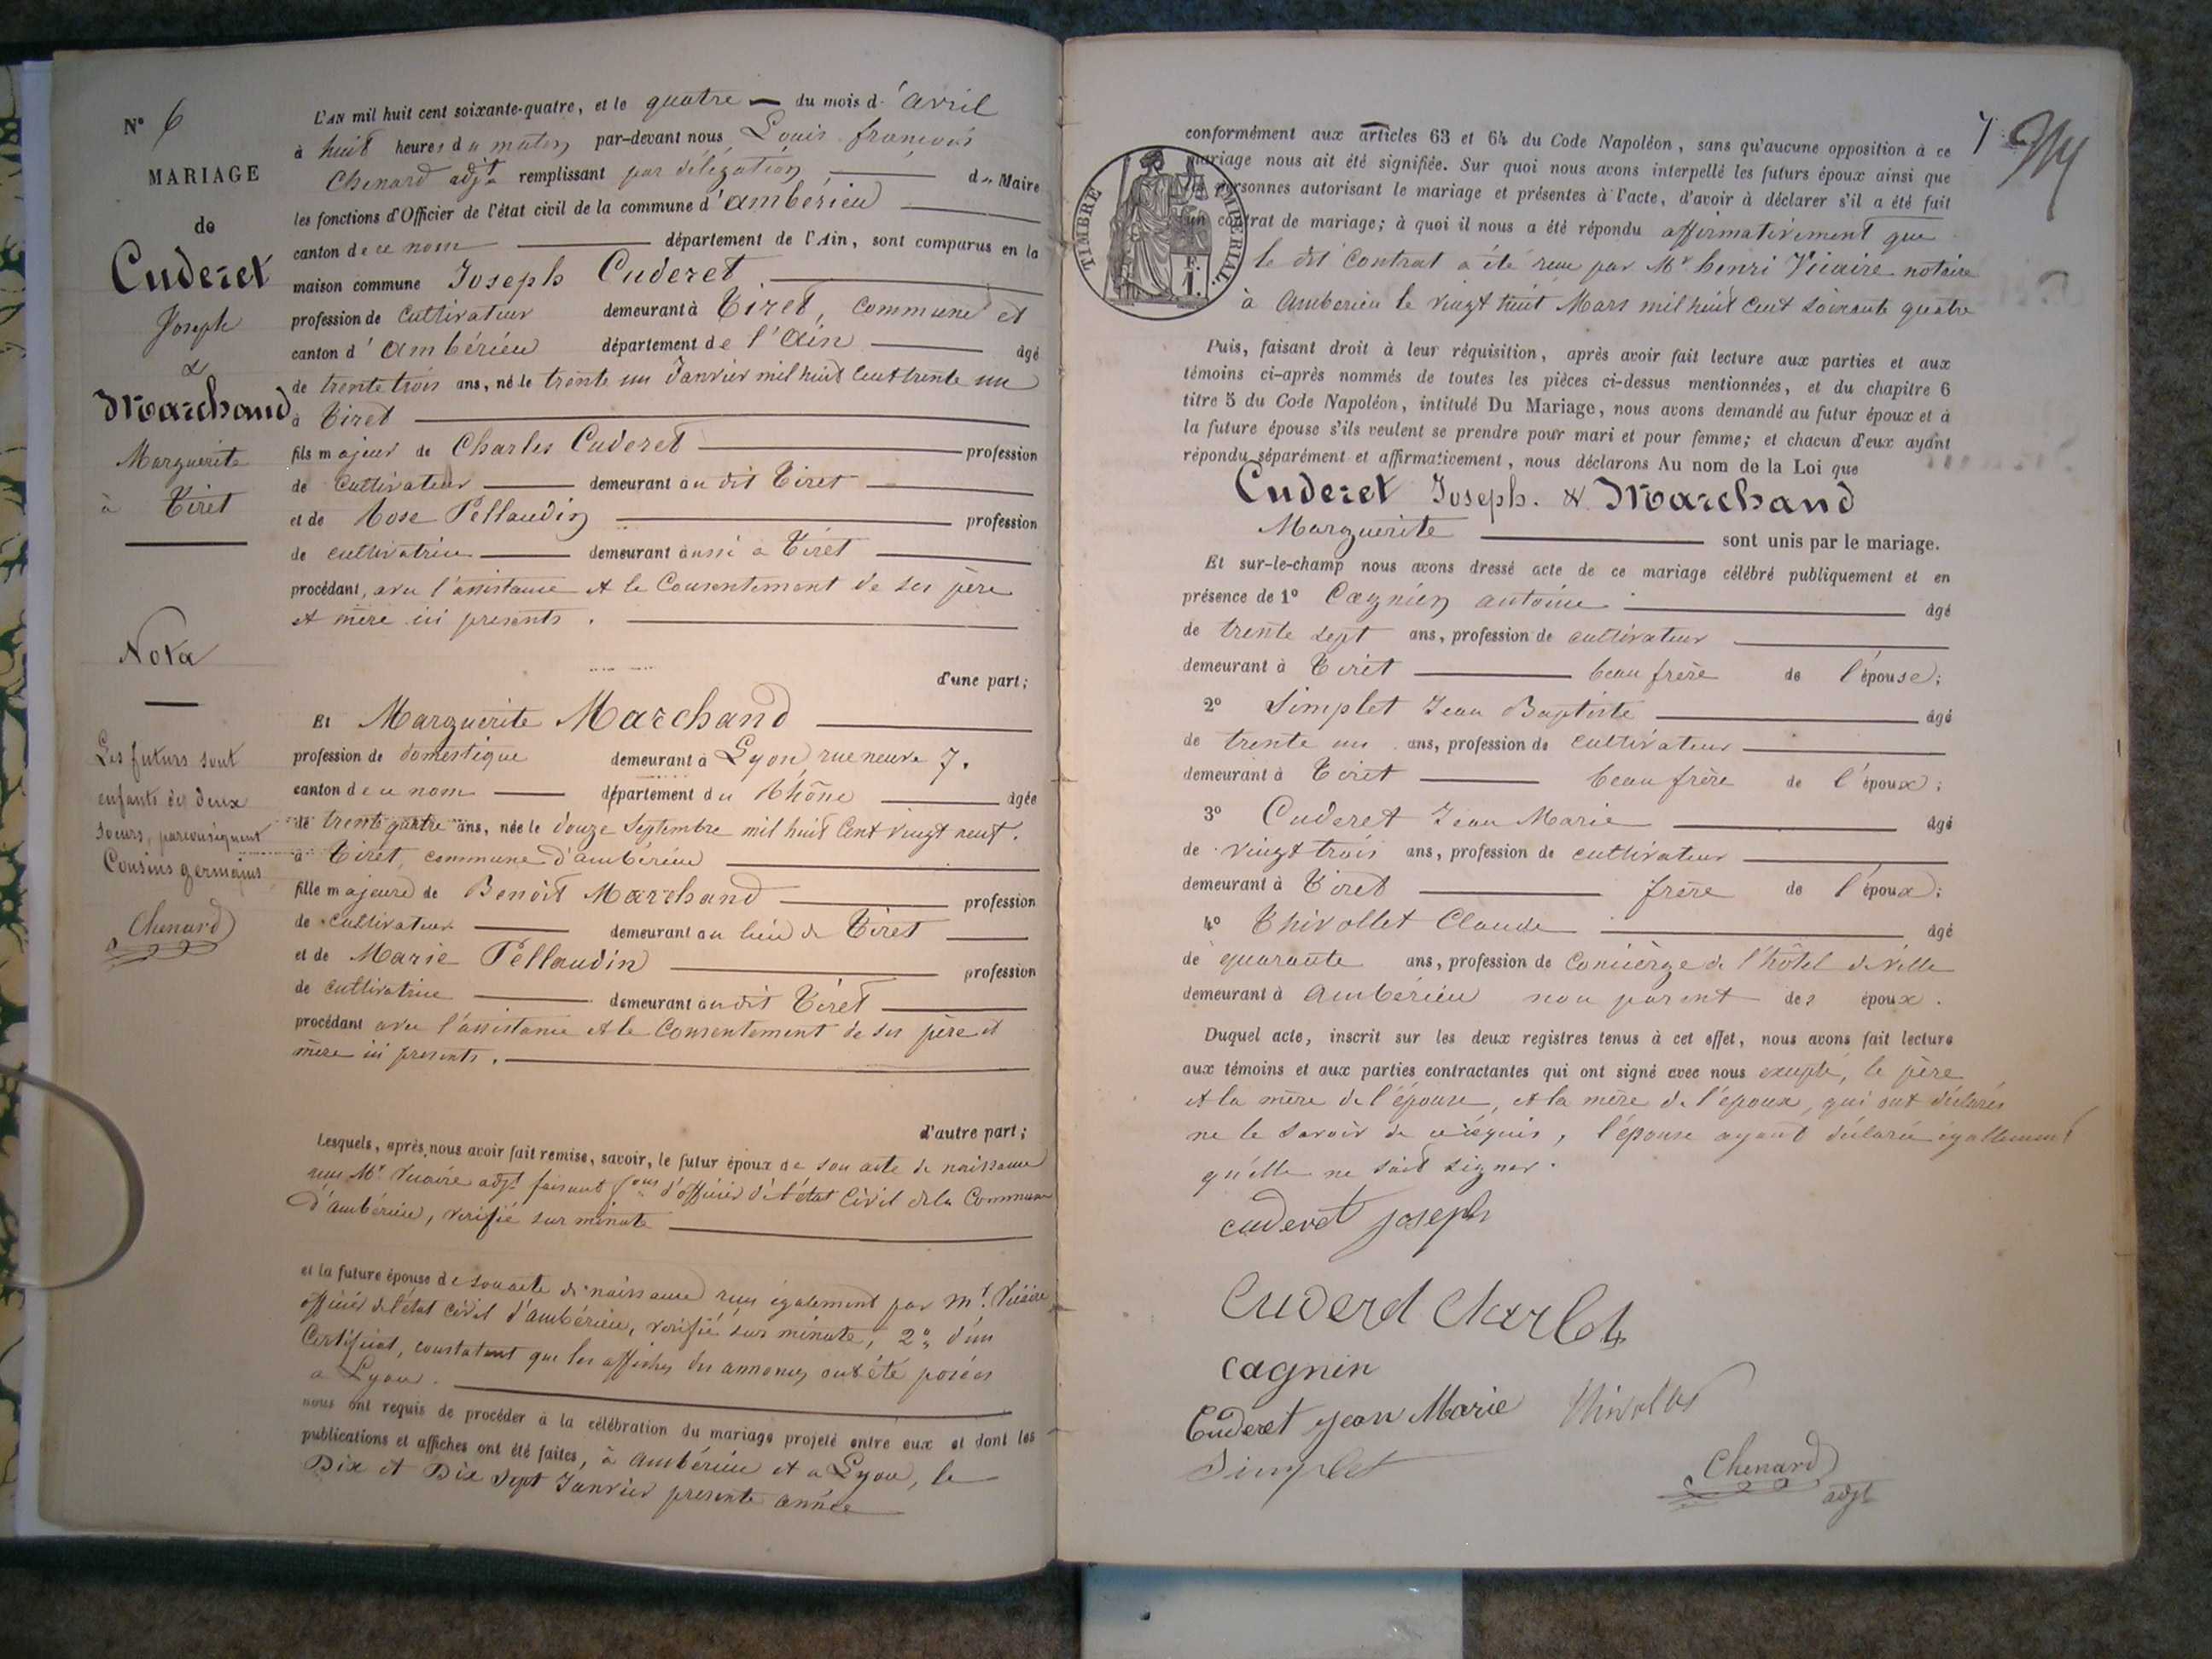 N° 6
MARIAGE
de
Cuderet
Joseph
&
Marchand
Marguerite
à Tiret
Nota
Les futurs sont
enfants des deux
soeurs, parconséquent
Cousins germains
Chenard
L'AN mil huit cent soixante-quatre, et le quatre — du mois d'avril
à huit heures du matin par-devant nous Louis françois
Chenard adjt remplissant par délégation du Maire
les fonctions d'Officier de l'état civil de la commune d'ambérieu
canton de ce nom département de l'Ain, sont comparus en la
maison commune Joseph Cuderet
profession de cultivateur demeurant à Tiret, commune et
canton d'ambérieu département de l'Ain âgé
de trente trois ans, né le trente un Janvier mil huit cent trente un
à Tiret
fils majeur de Charles Cuderet profession
de cultivateur demeurant au dit Tiret
et de Rose Pellaudin profession
de cultivatrice demeurant aussi a Tiret
procédant, avec l'assistance et le Consentement de ses père
et mère ici presents.
d'une part;
Et Marguerite Marchand
profession de domestique demeurant à Lyon rue neuve 7.
canton de ce nom département du Rhône âgée
de trente quatre ans, née le douze Septembre mil huit Cent vingt neuf.
à Tiret, commune d'ambérieu
fille majeure de Benoit Marchand profession
de cultivateur demeurant au lieu de Tiret
et de Marie Pellaudin profession
de cultivatrice demeurant au dit Tiret
procédant avec l'assistance et le Consentement de ses père et
mère ici presents.
d'autre part;
Lesquels, après nous avoir fait remise, savoir, le futur époux de son acte de naissance
reçu Mr Vicaire adjt faisant fons d'officier de l'état Civil de la Commune
d'ambérieu, verifié sur minute
et la future épouse de son acte de naissance reçu également par Mr. Vicaire
officier de l'état civil d'ambérieu, verifié sur minute, 2° d'un
Certificat, constatant que les affiches des annonces ont été posées
a Lyon.
nous ont requis de procéder à la célébration du mariage projeté entre eux et dont les
publications et affiches ont été faites, à ambérieu et a Lyon, le
Dix et Dix sept Janvier presente année
7
TIMBRE IMPÉRIAL
F.
1.
conformément aux articles 63 et 64 du Code Napoléon, sans qu'aucune opposition à ce
mariage nous ait été signifiée. Sur quoi nous avons interpellé les futurs époux ainsi que
les personnes autorisant le mariage et présentes à l'acte, d'avoir à déclarer s'il a été fait
un contrat de mariage; à quoi il nous a été répondu affirmativement que
le dit Contrat a été reçu par Mr henri Vicaire notaire
à Amberieu le vingt huit Mars mil huit cent soixante quatre
Puis, faisant droit à leur réquisition, après avoir fait lecture aux parties et aux
témoins ci-après nommés de toutes les pièces ci-dessus mentionnées, et du chapitre 6
titre 5 du Code Napoléon, intitulé Du Mariage, nous avons demandé au futur époux et à
la future épouse s'ils veulent se prendre pour mari et pour femme; et chacun d'eux ayant
répondu séparément et affirmativement, nous déclarons Au nom de la Loi que
Cuderet Joseph. & Marchand
Marguerite sont unis par le mariage.
Et sur-le-champ nous avons dressé acte de ce mariage célébré publiquement et en
présence de 1° Cagnin antoine âgé
de trente sept ans, profession de cultivateur
demeurant à Tiret beau frère de l'épouse;
2° Simplet Jean Baptiste âgé
de trente un ans, profession de cultivateur
demeurant à Tiret beau frère de l'époux;
3° Cuderet Jean Marie âgé
de vingt trois ans, profession de cultivateur
demeurant à Tiret frère de l'époux;
4° Thivollet Claude âgé
de quarante ans, profession de Concièrge de l'hôtel de Ville
demeurant à Ambérieu non parent des époux.
Duquel acte, inscrit sur les deux registres tenus à cet effet, nous avons fait lecture
aux témoins et aux parties contractantes qui ont signé avec nous excepté, le père
et la mère de l'épouse, et la mère de l'époux, qui ont déclarés
ne le savoir de ce requis, l'épouse ayant déclarée égallement
qu'elle ne sait signer.
cuderet joseph
Cuderd Charles
cagnin
Cuderet jean Marie Thivollet
Simplet
Chenard
adjt